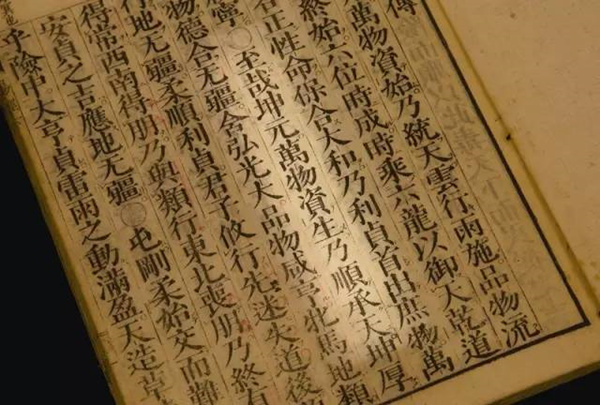 傳
萬物資始乃統天雲行雨施品物流
終始六位時成時乘六龍以御天乾道
正性命保合大和乃利貞首出庶物萬
寧○至哉坤元萬物資生乃順承天坤厚
物德合无疆含弘光大品物咸亨牝馬地類
行地无疆柔順利貞君子攸行先迷失道後
得常西南得朋乃與類行東北喪朋乃終有
安貞之吉應地无疆○屯剛柔始交而難
乎險中大亨貞雷雨之動滿盈天造草